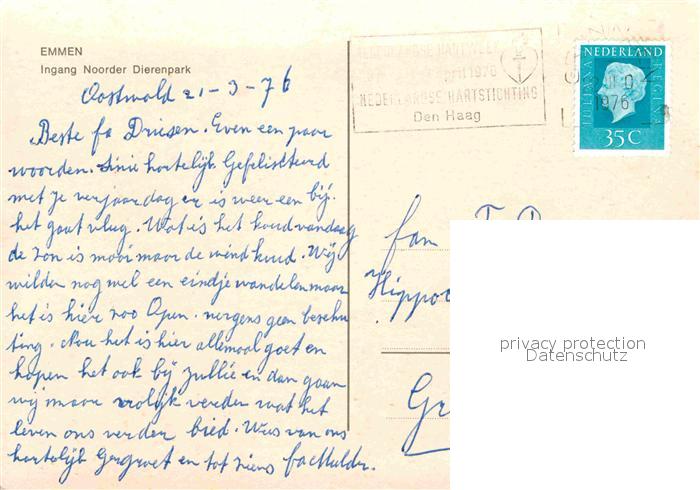 EMMEN
Ingang Noorder Dierenpark
Oostwold 21-3-76
Beste fa Driesen. Even een paar
woorden. hartelijk Gefeliseteerd
met je verjaardag er is weer een bij.
het gaat vlug. Wat is het koud vandaag
de zon is mooi maar de wind kuud. Wij
wilden nog wel een eindje wandelen maar
het is hier zoo Open. nergens geen beschu
tting. Nou het is hier allemaal goet en
hopen het ook bij jullie en dan gaan
wij maar vrolijk verder wat het
leven ons verder bied. Wees van ons
hartelijk Gegroet en tot ziens fa Mulder.
HARTWEEK
april 1976
NEDERLANDSE HARTSTICHTING
Den Haag
NEDERLAND
JULIANA REGINA
1976
35 C
fam
Hippoc
Gr
privacy protection
Datenschutz